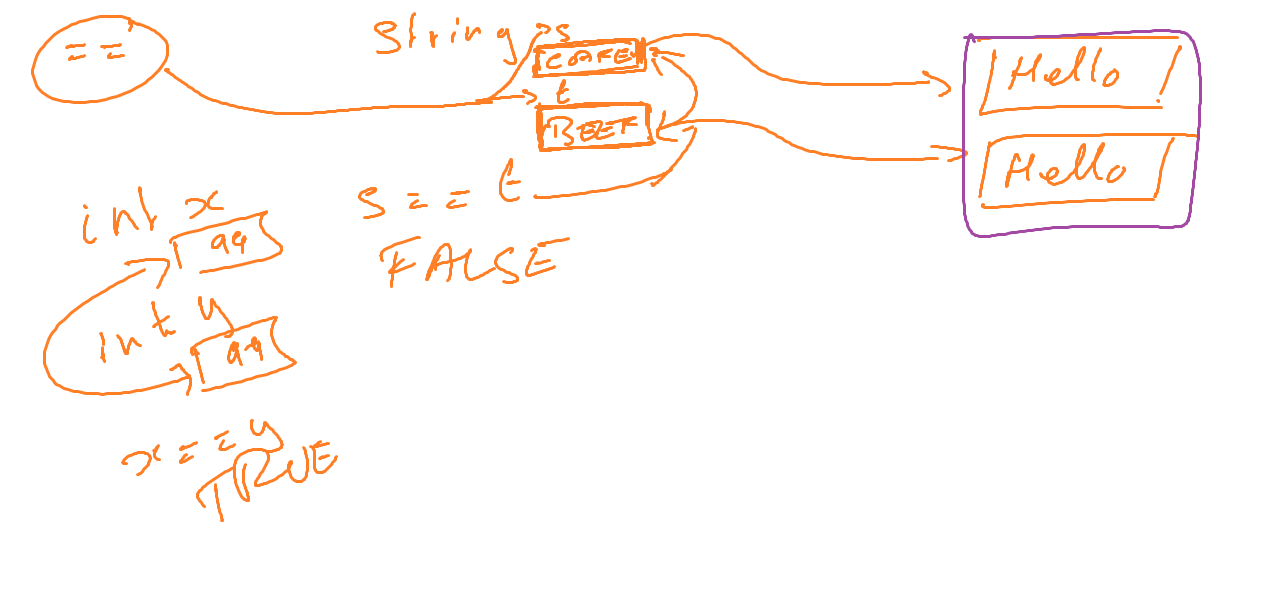 ==
String s
CAFE
t
BEEF
Hello
Hello
s == t
FALSE
int x
99
int y
99
x == y
TRUE